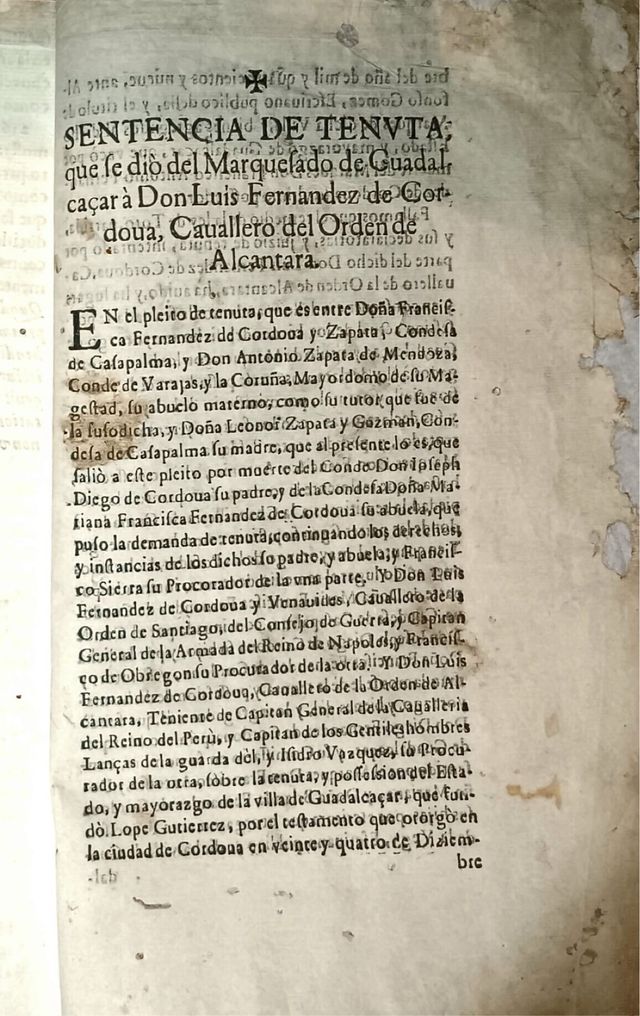 ✠
SENTENCIA DE TENVTA,
que se diò del Marquesado de Guadal-
caçar à Don Luis Fernandez de Cor-
doua, Cauallero del Orden de
Alcantara.
EN el pleito de tenuta, que es entre Doña Francis-
ca Fernandez de Cordoua y Zapata, Condesa
de Casapalma, y Don Antonio Zapata de Mendoza,
Conde de Varajas, y la Coruña, Mayordomo de su Ma-
gestad, su abuelo materno, como su tutor, que fue de
la susodicha, y Doña Leonor Zapata y Guzman, Con-
desa de Casapalma su madre, que al presente lo es, que
saliò a este pleito por muerte del Conde Don Ioseph
Diego de Cordoua su padre, y de la Condesa Doña Ma-
riana Francisca Fernandez de Cordoua su abuela, que
puso la demanda de tenuta, continuando los derechos,
y instancias de los dichos so padre, y abuela, y Francis-
co Sierra su Procorador de la vna parte. Y Don Luis
Fernandez de Cordoua y Venauides, Cauallero de la
Orden de Santiago, del Consejo de Guerra, y Capitan
General de la Armada del Reino de Napoles, y Francis-
co de Obregon su Procurador de la otra. Y Don Luis
Fernandez de Cordoua, Cauallero de la Orden de Al-
cantara, Teniente de Capitan General de la Caualleria
del Reino del Perù, y Capitan de los Gentileshombres
Lanças de la guarda dèl, y Isidro Vazquez, su Procu-
rador de la otra, sobre la tenuta, y possession del Esta-
do, y mayorazgo de la villa de Guadalcaçar, que fun-
dò Lope Gutierrez, por el testamento que otorgò en
la ciudad de Cordoua en veinte y quatro de Diziem-
bre